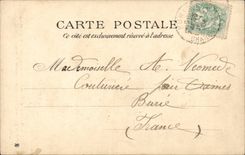 CARTE POSTALE
Ce côté est exclusivement réservé à l'adresse
Mademoiselle A.
Couturière pour Dames
Burie
France